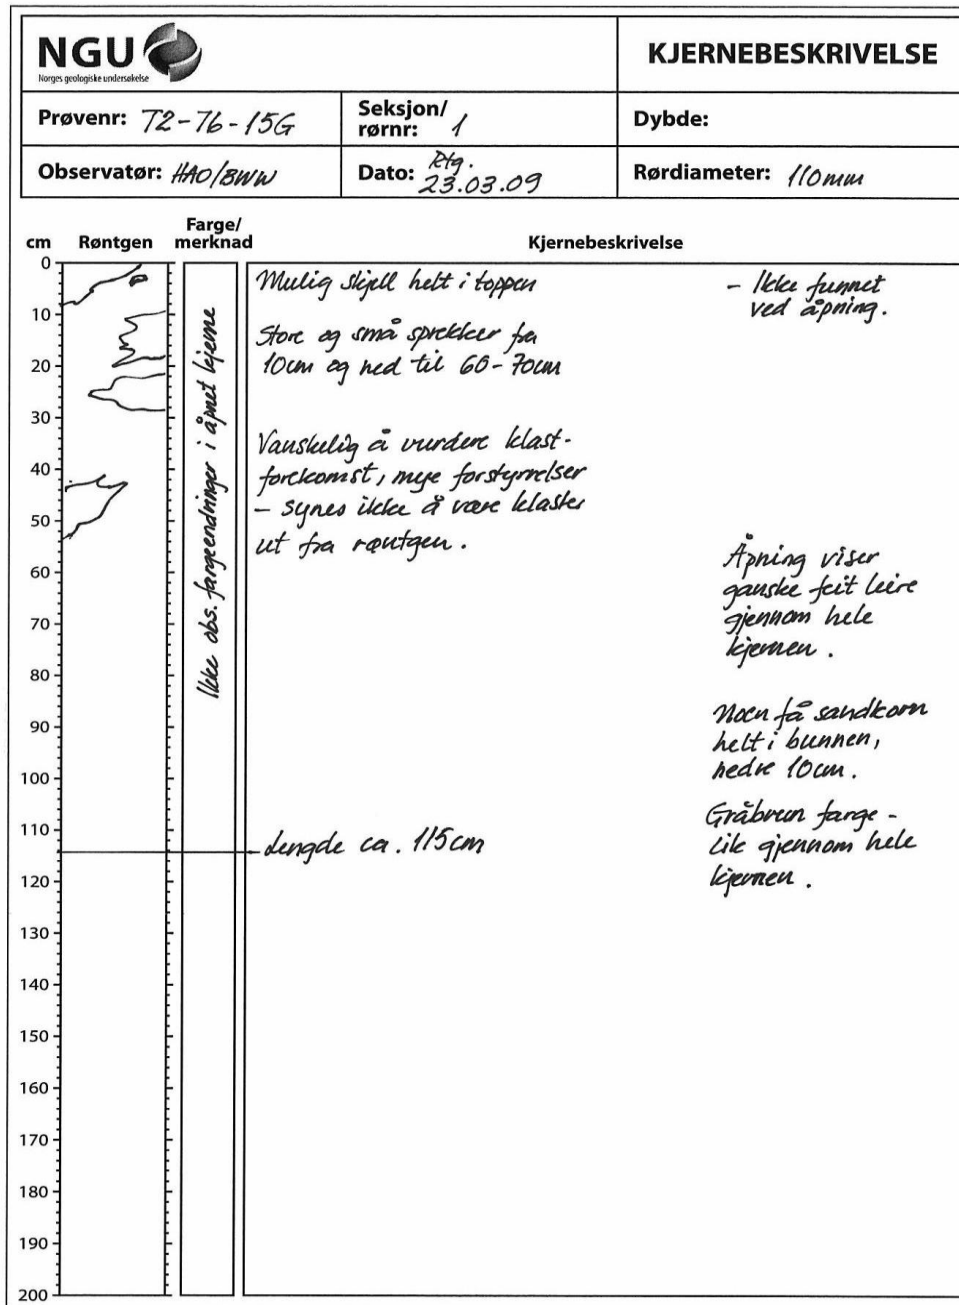 NGU
Norges geologiske undersøkelse
KJERNEBESKRIVELSE
Prøvenr: T2-76-15G
Seksjon/
rørnr: 1
Dybde:
Observatør: HAO/BWW
Dato: Rtg.
23.03.09
Rørdiameter: 110mm
cm
Røntgen
Farge/
merknad
Kjernebeskrivelse
0
10
20
30
40
50
60
70
80
90
100
110
120
130
140
150
160
170
180
190
200
Ikke obs. fargeendringer i åpnet kjerne
Mulig skjell helt i toppen
- Ikke funnet
ved åpning.
Store og små sprekker fra
10cm og ned til 60-70cm
Vanskelig å vurdere klast-
forekomst, mye forstyrrelser
- synes ikke å være klaster
ut fra røntgen.
Åpning viser
ganske feit leire
gjennom hele
kjernen.
Noen få sandkorn
helt i bunnen,
nedre 10cm.
Gråbrun farge -
lik gjennom hele
kjernen.
Lengde ca. 115cm